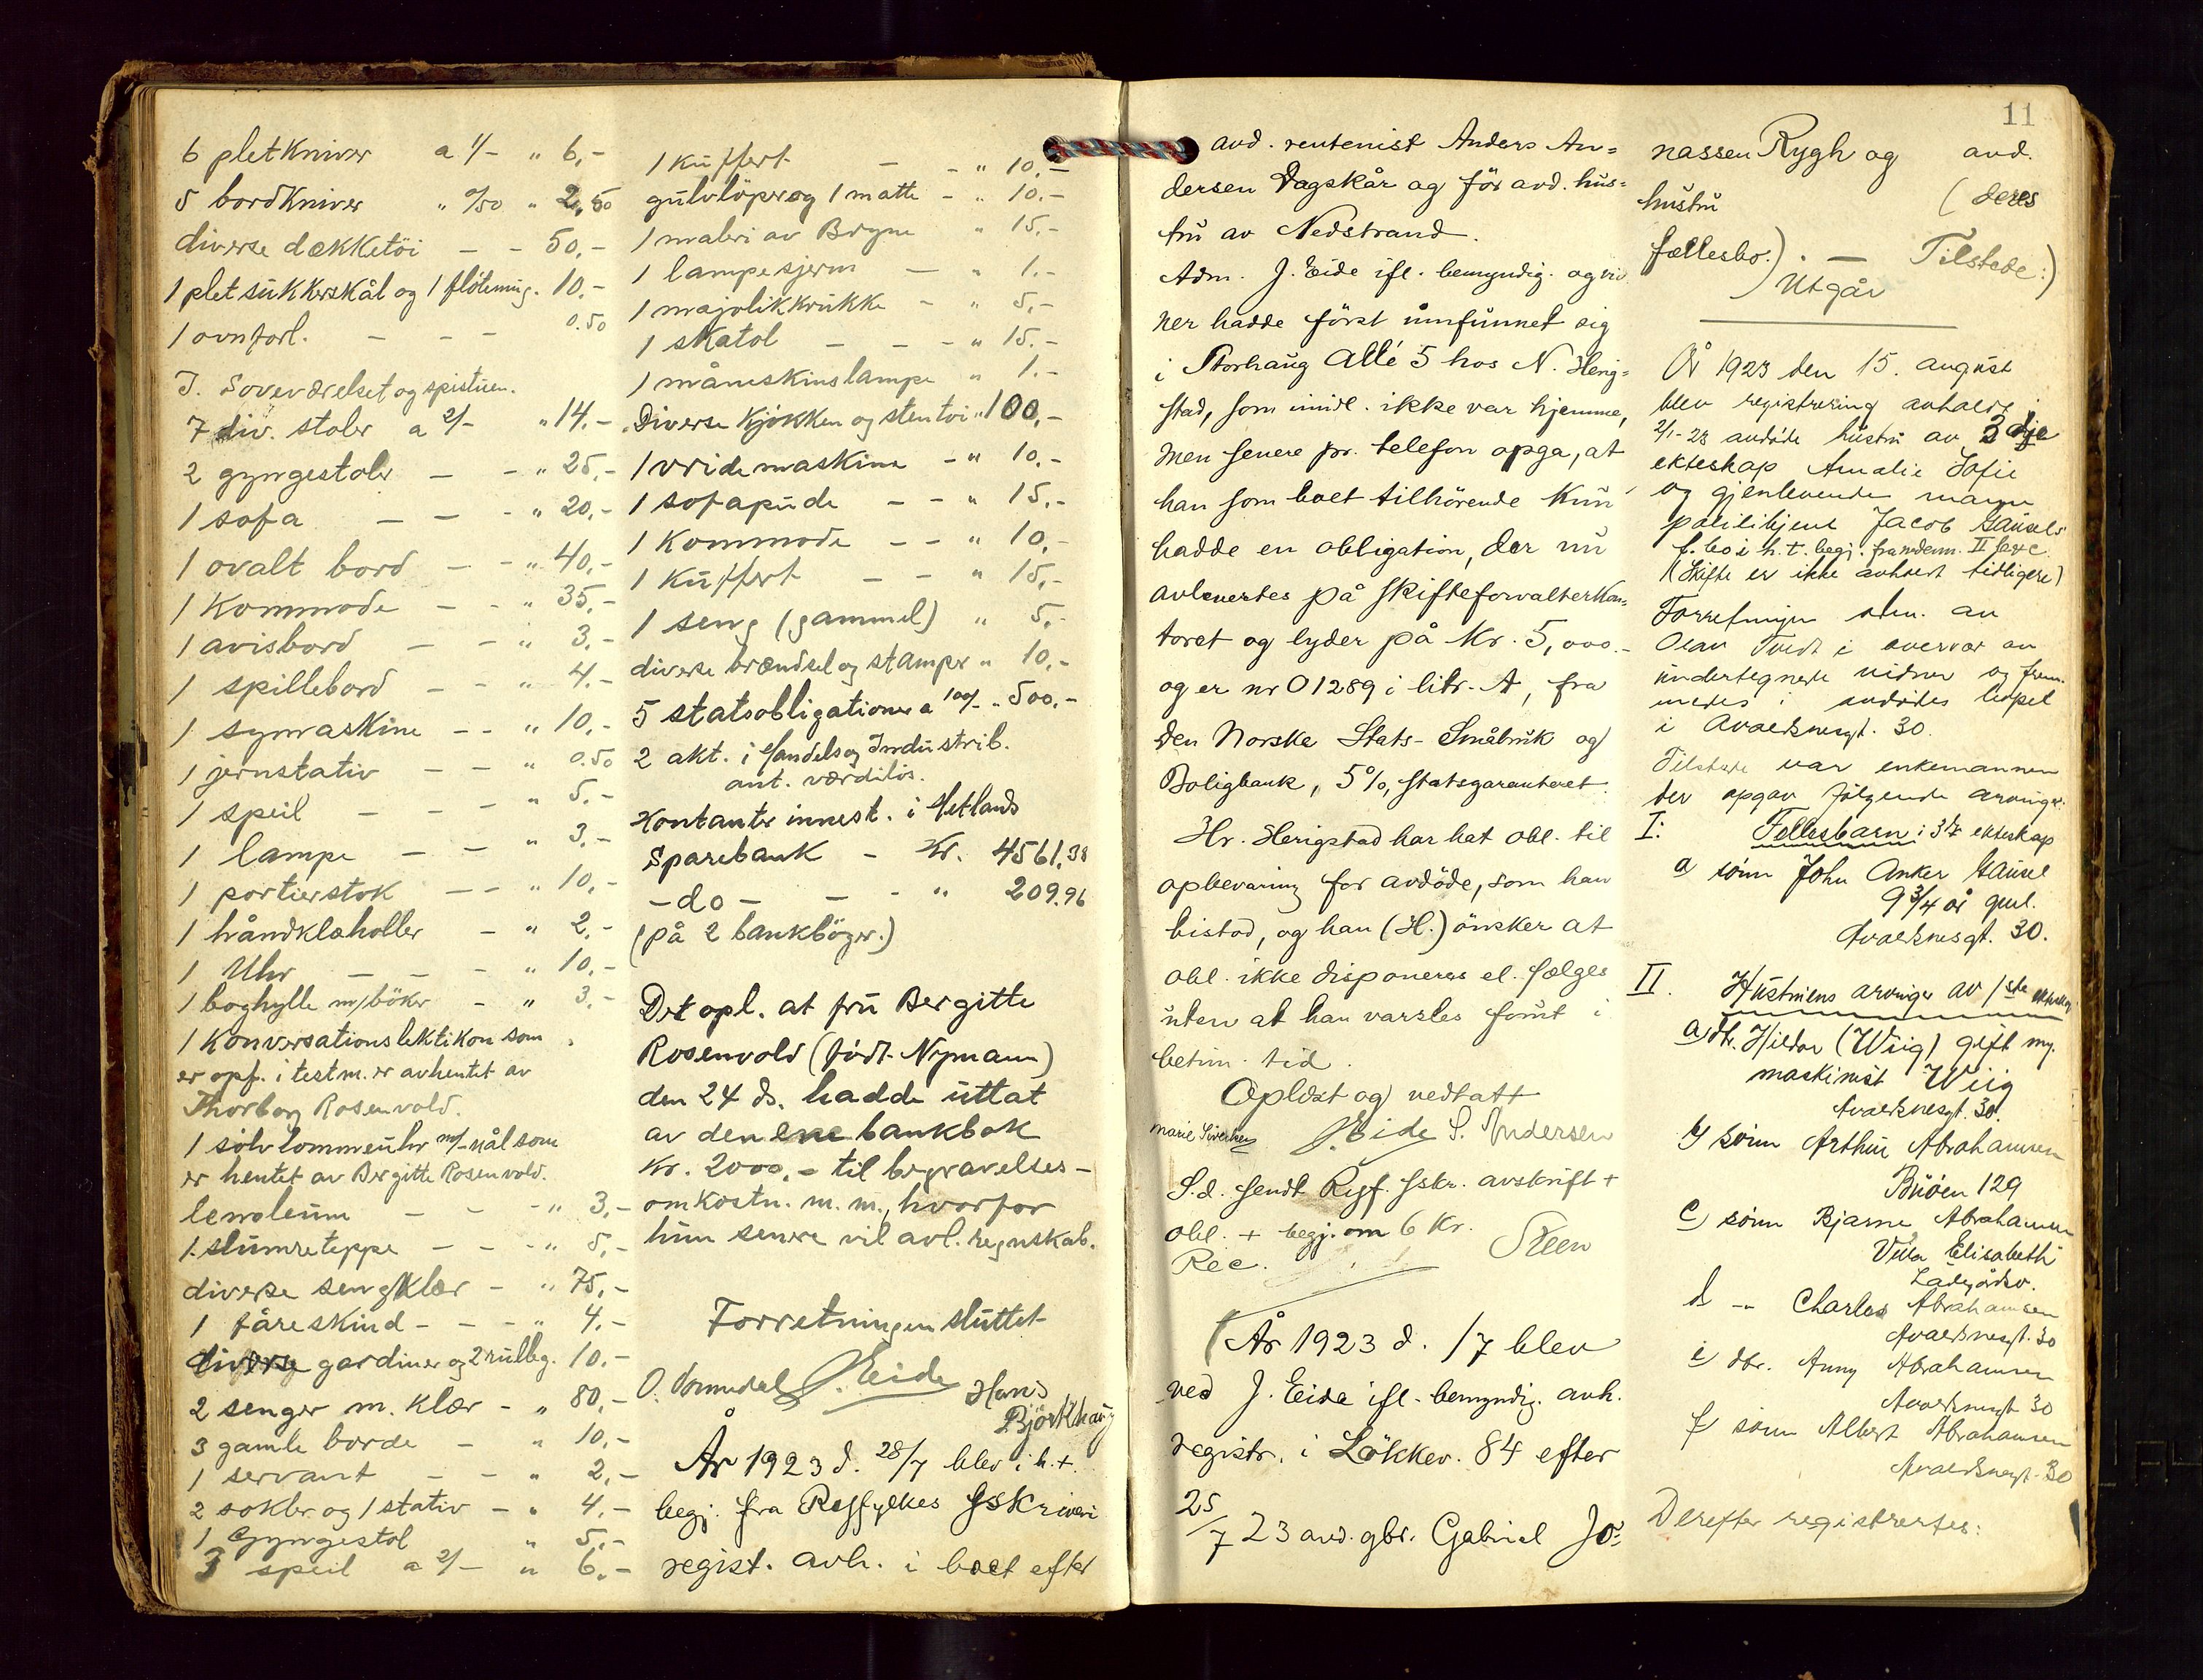 6 pletkniver a 1/- " 6,-
5 bordkniver " 0/50 " 2,50
diverse dækketöi - - 50,-
1 plet sukkerskål og 1 flötemug. 10.-
1 ovnforl. - - - 0.50
I. Soveværelset og spistuen.
7 div. stoler a 2/- " 14.-
2 gyngestoler - - " 25,-
1 sofa - - - " 20,-
1 ovalt bord - - " 40,-
1 kommode - - " 35,-
1 avisbord - - " 3,-
1 spillebord - - " 4.-
1 symaskine - - " 10,-
1 jernstativ - - " 0.50
1 speil - - - " 5.-
1 lampe - - " 3,-
1 portierstok - - " 10,-
1 håndklæholler - " 2,-
1 Uhr - - - " 10,-
1 boghylle m/böker - " 3,-
1 Konversationslektikon som
er opf. i testm. er avhentet av
Thorborg Rosenvold.
1 sölvlommeuhr m/-nål som
er hentet av Bergitte Rosenvold.
lenoleum - - - " 3,-
1 slumreteppe - - - " 5,-
diverse sengklær - " 75,-
1 fåreskind - - - " 4,-
diverse gardiner og 2 rulleg. 10.-
2 senger m. klær - " 80,-
3 gamle borde - " 10,-
1 servant - - " 2,-
2 sokler og 1 stativ - " 4,-
1 Gyngestol " 5,-
3 speil a 2/- " 6,-
1 kuffert - - " 10,-
gulvlöper og 1 matte - " 10.-
1 maleri av Bryne " 15,-
1 lampesjerm - " 1.-
1 majolikkrukke - " 5,-
1 skatol - - - " 15.-
1 måneskinslampe " 1.-
Diverse Kjökken og stentöi " 100,-
1 vridemaskine - " 10.-
1 sofapude - - " 15,-
1 Kommode - - " 10,-
1 kuffert - - " 15,-
1 seng (gammel) " 5,-
diverse brændsel og stamper " 10,-
5 statsobligationer a 100/- " 500,-
2 akt. i Handels og Industrib.
ant. værdilös.
Kontanter innest. i Hetlands
Sparebank - Kr. 4561,38
-do- - - " 209.96
(på 2 bankböger.)
Det opl. at fru Bergitte
Rosenvold (födt Nymann)
den 24 ds. hadde uttat
av den ene bankbok
kr. 2000,- til begravelses-
omkostn. m. m., hvorfor
hun senere vil avl. regnskab.
Forretningen sluttet
O. Ommedal J. Eide Hans
Björkhaug
År 1923 d. 28/7 blev i h. t.
begj. fra Ryfylkes sskriveri
regist. avh. i boet efter
11
avd. rentenist Anders An=
dersen Dagskår og för avd. hus=
tru av Nedstrand.
Adm. J. Eide ifl. bemyndig. og vid
ner hadde först innfunnet sig
i Storhaug Allé 5 hos N. Herig=
stad, som imidl. ikke var hjemme,
men senere pr. telefon opga, at
han som boet tilhörende kun
hadde en obligation, der nu
avlevertes på skifteforvalterkon=
toret og lyder på kr. 5,000.-
og er nr 01289 i litr. A, fra
den Norske Stats- Småbruk og
Boligbank, 5%, statsgaranteret.
Hr. Herigstad har hat obl. til
opbevaring for avdöde, som han
bistod, og han (H.) önsker at
obl. ikke disponeres el. sælges
uten at han varsles forut i
betim. tid.
Oplæst og vedtatt
Marie Sivertsen J. Eide S. Andersen
S.d. sendt Ryf. sskr. avskrift +
obl. + begj. om 6 kr. Steen
Rec.
År 1923 d. /7 blev
ved J. Eide ifl. bemyndig. avh.
registr. i Lökkev. 84 efter
25/7 23 avd. gbr. Gabriel Jo=
nassen Rygh og avd.
hustru (deres
fællesbo.). - Tilstede:)
Utgår
År 1923 den 15. august
blev registrering avholdt i
2/1-23 avdöde hustru av 3dje
ekteskap Amalie Sofie
og gjenlevende mann
politibetjent Jacob Gausels
f. bo i h. t. begj. fra
(Skifte er ikke avholdt tidligere)
Forretningen adm. av
Olav Tvedt i overvær av
undertegnede vidner og frem-
medes i avdödes leopel
i Avaldsnesgt. 30.
Tilstede var enkemannen
der opgav fölgende arvinger:
I: Fellesbarn i 3dje ekteskap
a sönn John Anker Gausel
9 3/4 år gml.
Avaldsnesgt. 30.
II. Hustruens arvinger av 1ste ekteskap
a) dtr. Hildar (Wiig) gift m.
maskinist Wiig
Avaldsnesgt. 30
b) sönn Arthur Abrahamsen
Buöen 129
c) sönn Bjarne Abrahamsen
Villa Elisabeth
Ladegårdsv.
d -"- Charles Abrahamsen
Avaldsnesgt. 30
e) dtr. Anny Abrahamsen
Avaldsnesgt 30
f sönn Albert Abrahamsen
Avaldsnesgt. 30
Derefter registrertes: